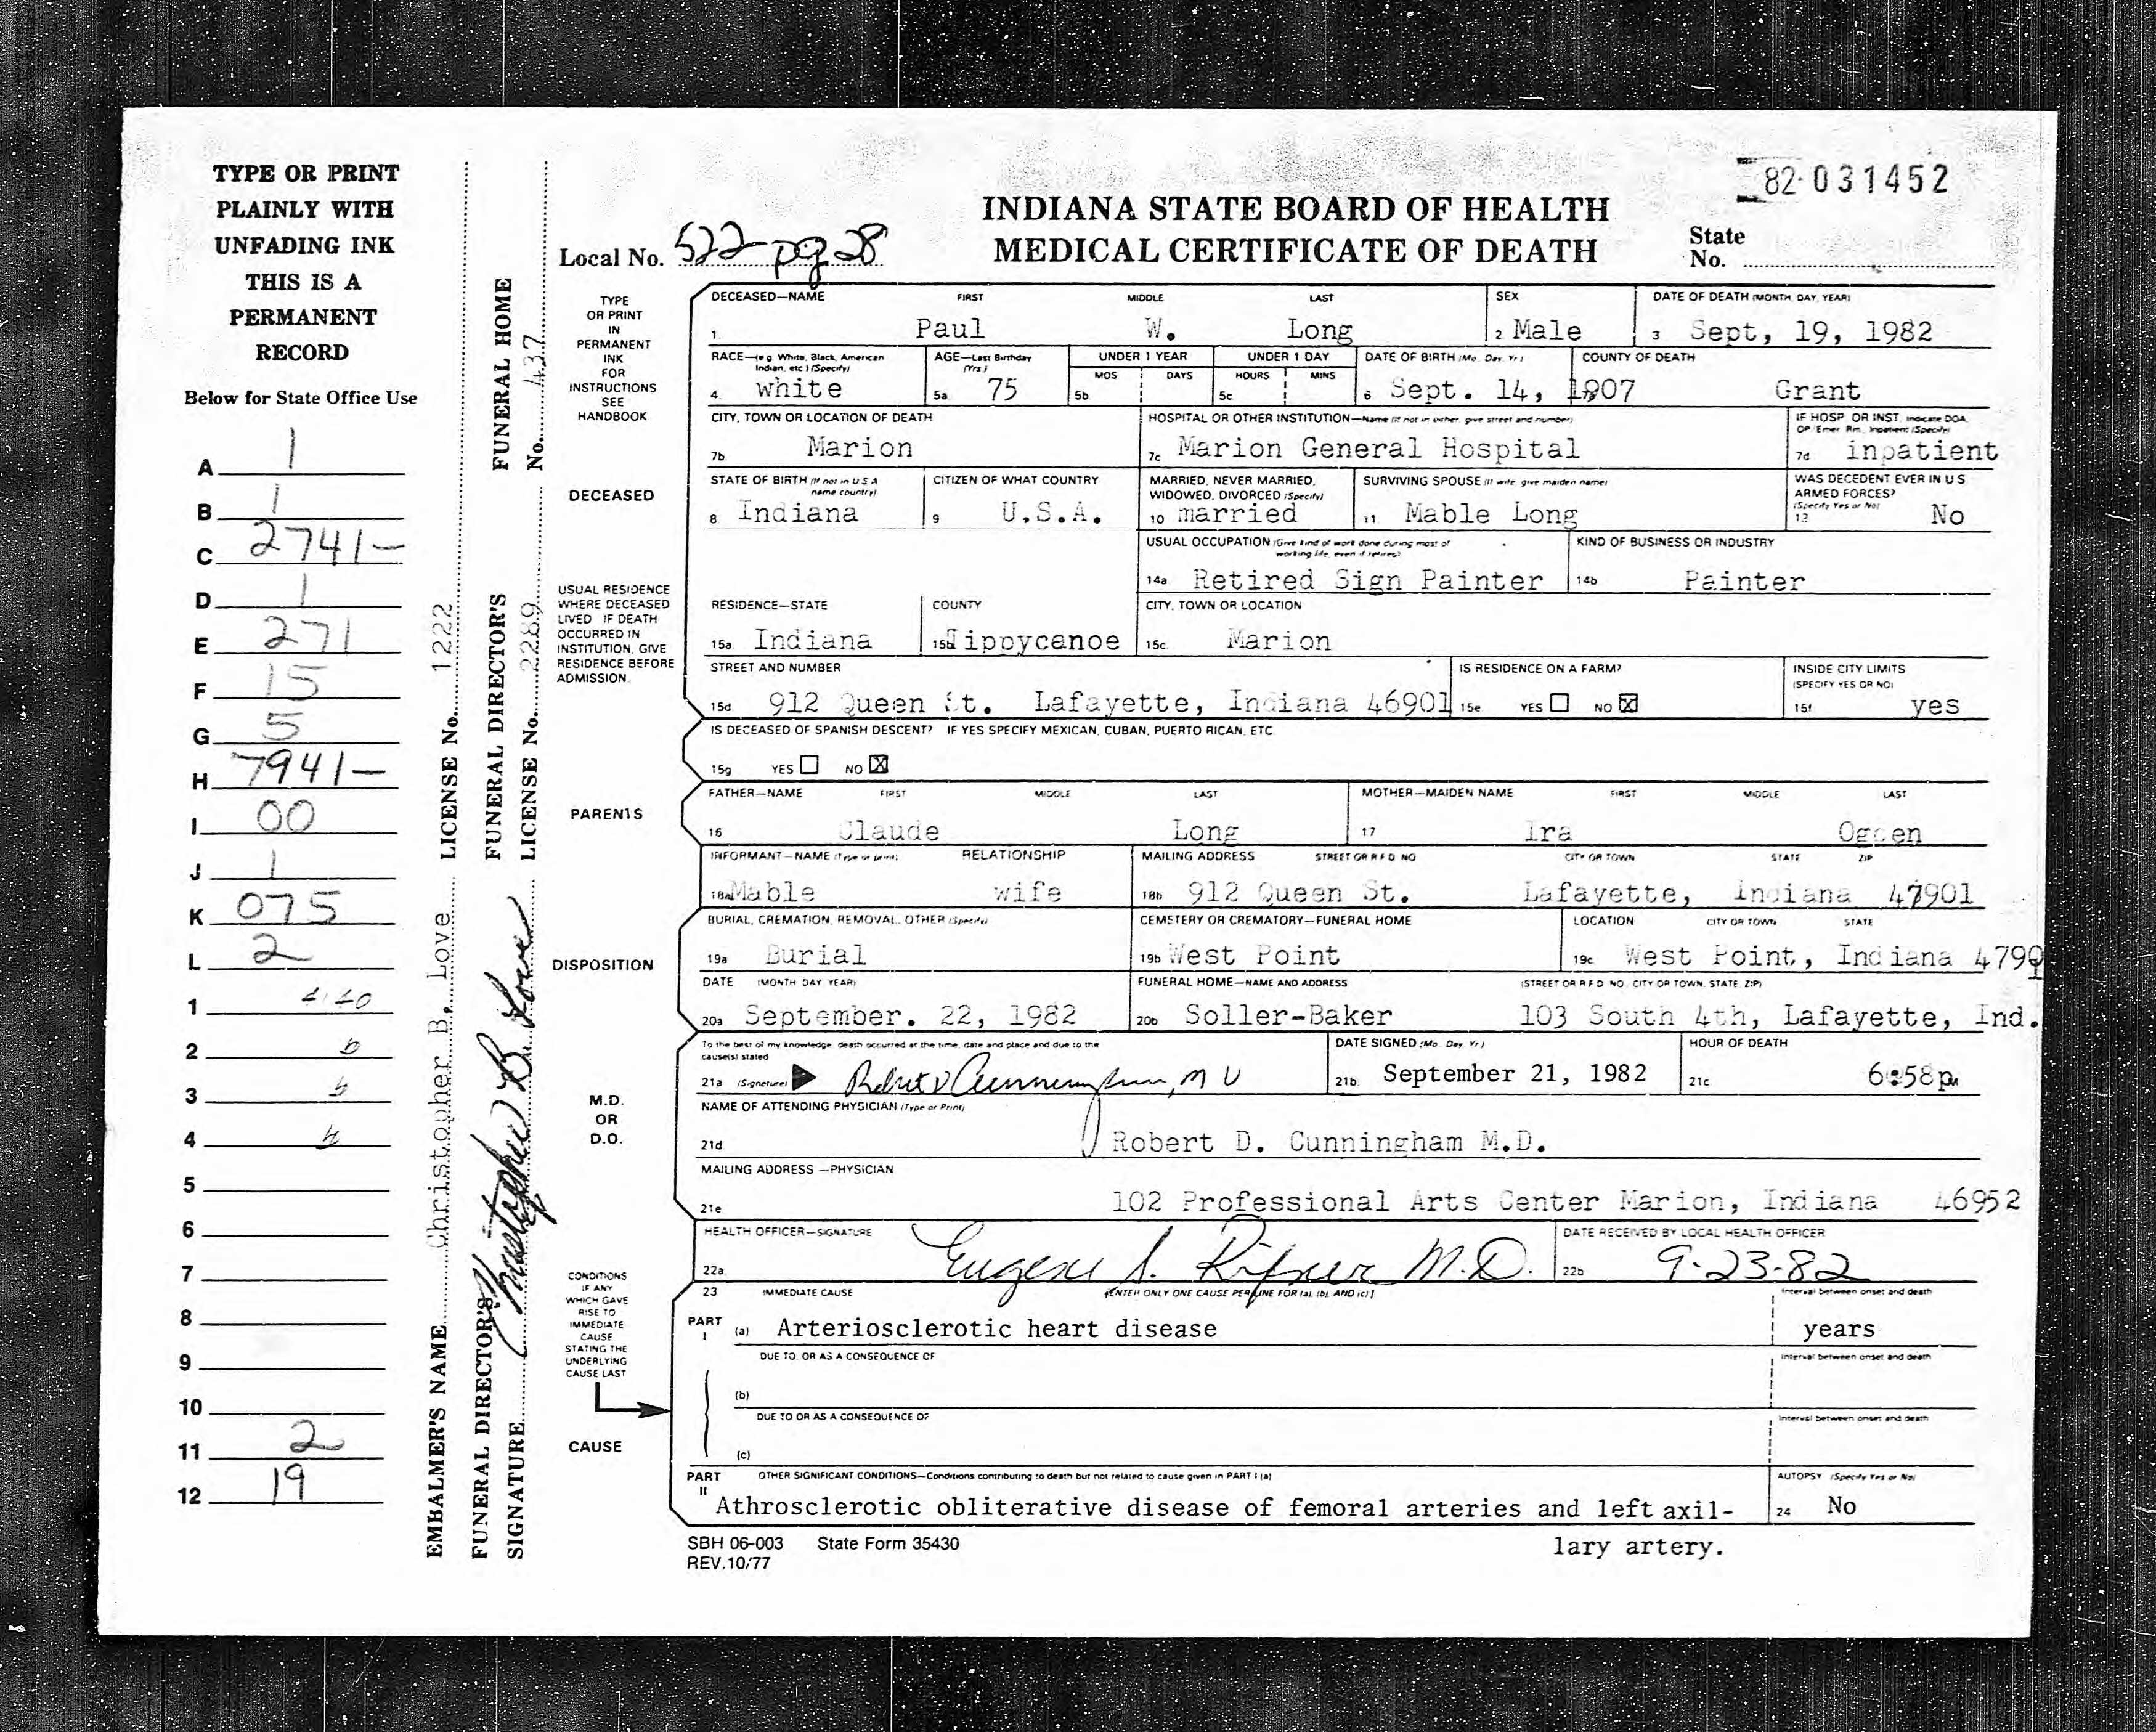 TYPE OR PRINT
PLAINLY WITH
UNFADING INK
THIS IS A
PERMANENT
RECORD
Below for State Office Use
A 1
B 1
C 2741-
D 1
E 271
F 15
G 5
H 7941-
I 00
J 1
K 075
L 2
1
2
3
4
5
6
7
8
9
10
11 2
12 19
EMBALMER'S NAME Christopher B. Love LICENSE No. 1222
FUNERAL DIRECTOR'S SIGNATURE Christopher B Love
FUNERAL DIRECTOR'S LICENSE No. 2289
FUNERAL HOME No. 437
82-031452
INDIANA STATE BOARD OF HEALTH
MEDICAL CERTIFICATE OF DEATH
Local No. 522-pg 28
State No.
TYPE
OR PRINT
IN
PERMANENT
INK
FOR
INSTRUCTIONS
SEE
HANDBOOK
DECEASED
DECEASED—NAME FIRST MIDDLE LAST SEX DATE OF DEATH (MONTH, DAY, YEAR)
1. Paul W. Long 2 Male 3 Sept, 19, 1982
RACE—(e.g. White, Black, American Indian, etc.) (Specify) AGE—Last Birthday (Yrs.) UNDER 1 YEAR UNDER 1 DAY DATE OF BIRTH (Mo. Day. Yr.) COUNTY OF DEATH
MOS DAYS HOURS MINS
4. white 5a 75 5b 5c 6 Sept. 14, 1907 Grant
CITY, TOWN OR LOCATION OF DEATH HOSPITAL OR OTHER INSTITUTION—Name (If not in either, give street and number) IF HOSP. OR INST. Indicate DOA, OP/Emer. Rm., Inpatient (Specify)
7b Marion 7c Marion General Hospital 7d inpatient
STATE OF BIRTH (If not in U.S.A. name country) CITIZEN OF WHAT COUNTRY MARRIED, NEVER MARRIED, WIDOWED, DIVORCED (Specify) SURVIVING SPOUSE (If wife, give maiden name) WAS DECEDENT EVER IN U.S. ARMED FORCES? (Specify Yes or No)
8 Indiana 9 U.S.A. 10 married 11 Mable Long 12 No
USUAL OCCUPATION (Give kind of work done during most of working life, even if retired) KIND OF BUSINESS OR INDUSTRY
14a Retired Sign Painter 14b Painter
USUAL RESIDENCE
WHERE DECEASED
LIVED IF DEATH
OCCURRED IN
INSTITUTION, GIVE
RESIDENCE BEFORE
ADMISSION.
RESIDENCE—STATE COUNTY CITY, TOWN OR LOCATION
15a Indiana 15b Tippycanoe 15c. Marion
STREET AND NUMBER IS RESIDENCE ON A FARM? INSIDE CITY LIMITS (SPECIFY YES OR NO)
15d 912 Queen St. Lafayette, Indiana 46901 15e YES NO X 15f yes
IS DECEASED OF SPANISH DESCENT? IF YES SPECIFY MEXICAN, CUBAN, PUERTO RICAN, ETC.
15g YES NO X
PARENTS
FATHER—NAME FIRST MIDDLE LAST MOTHER—MAIDEN NAME FIRST MIDDLE LAST
16 Claude Long 17 Ira Ogden
INFORMANT—NAME (Type or print) RELATIONSHIP MAILING ADDRESS STREET OR R.F.D. NO CITY OR TOWN STATE ZIP
18a Mable wife 18b 912 Queen St. Lafayette, Indiana 47901
DISPOSITION
BURIAL, CREMATION, REMOVAL, OTHER (Specify) CEMETERY OR CREMATORY—FUNERAL HOME LOCATION CITY OR TOWN STATE
19a Burial 19b West Point 19c West Point, Indiana
DATE (MONTH DAY YEAR) FUNERAL HOME—NAME AND ADDRESS (STREET OR R.F.D. NO., CITY OR TOWN, STATE, ZIP)
20a September. 22, 1982 20b Soller-Baker 103 South 4th, Lafayette, Ind.
M.D.
OR
D.O.
To the best of my knowledge, death occurred at the time, date and place and due to the cause(s) stated DATE SIGNED (Mo. Day, Yr.) HOUR OF DEATH
21a (Signature) Robert D Cunningham, M D 21b. September 21, 1982 21c 6:58pm
NAME OF ATTENDING PHYSICIAN (Type or Print)
21d Robert D. Cunningham M.D.
MAILING ADDRESS—PHYSICIAN
21e 102 Professional Arts Center Marion, Indiana 46952
HEALTH OFFICER—SIGNATURE DATE RECEIVED BY LOCAL HEALTH OFFICER
22a. Eugene S. Rifner M.D. 22b 9-23-82
CONDITIONS
IF ANY
WHICH GAVE
RISE TO
IMMEDIATE
CAUSE
STATING THE
UNDERLYING
CAUSE LAST
CAUSE
23 IMMEDIATE CAUSE (ENTER ONLY ONE CAUSE PER LINE FOR (a), (b), AND (c)) Interval between onset and death
PART I (a) Arteriosclerotic heart disease years
DUE TO, OR AS A CONSEQUENCE OF Interval between onset and death
(b)
DUE TO OR AS A CONSEQUENCE OF Interval between onset and death
(c)
PART II OTHER SIGNIFICANT CONDITIONS—Conditions contributing to death but not related to cause given in PART I (a) AUTOPSY (Specify Yes or No)
Athrosclerotic obliterative disease of femoral arteries and left axil- 24 No
lary artery.
SBH 06-003 State Form 35430
REV.10/77